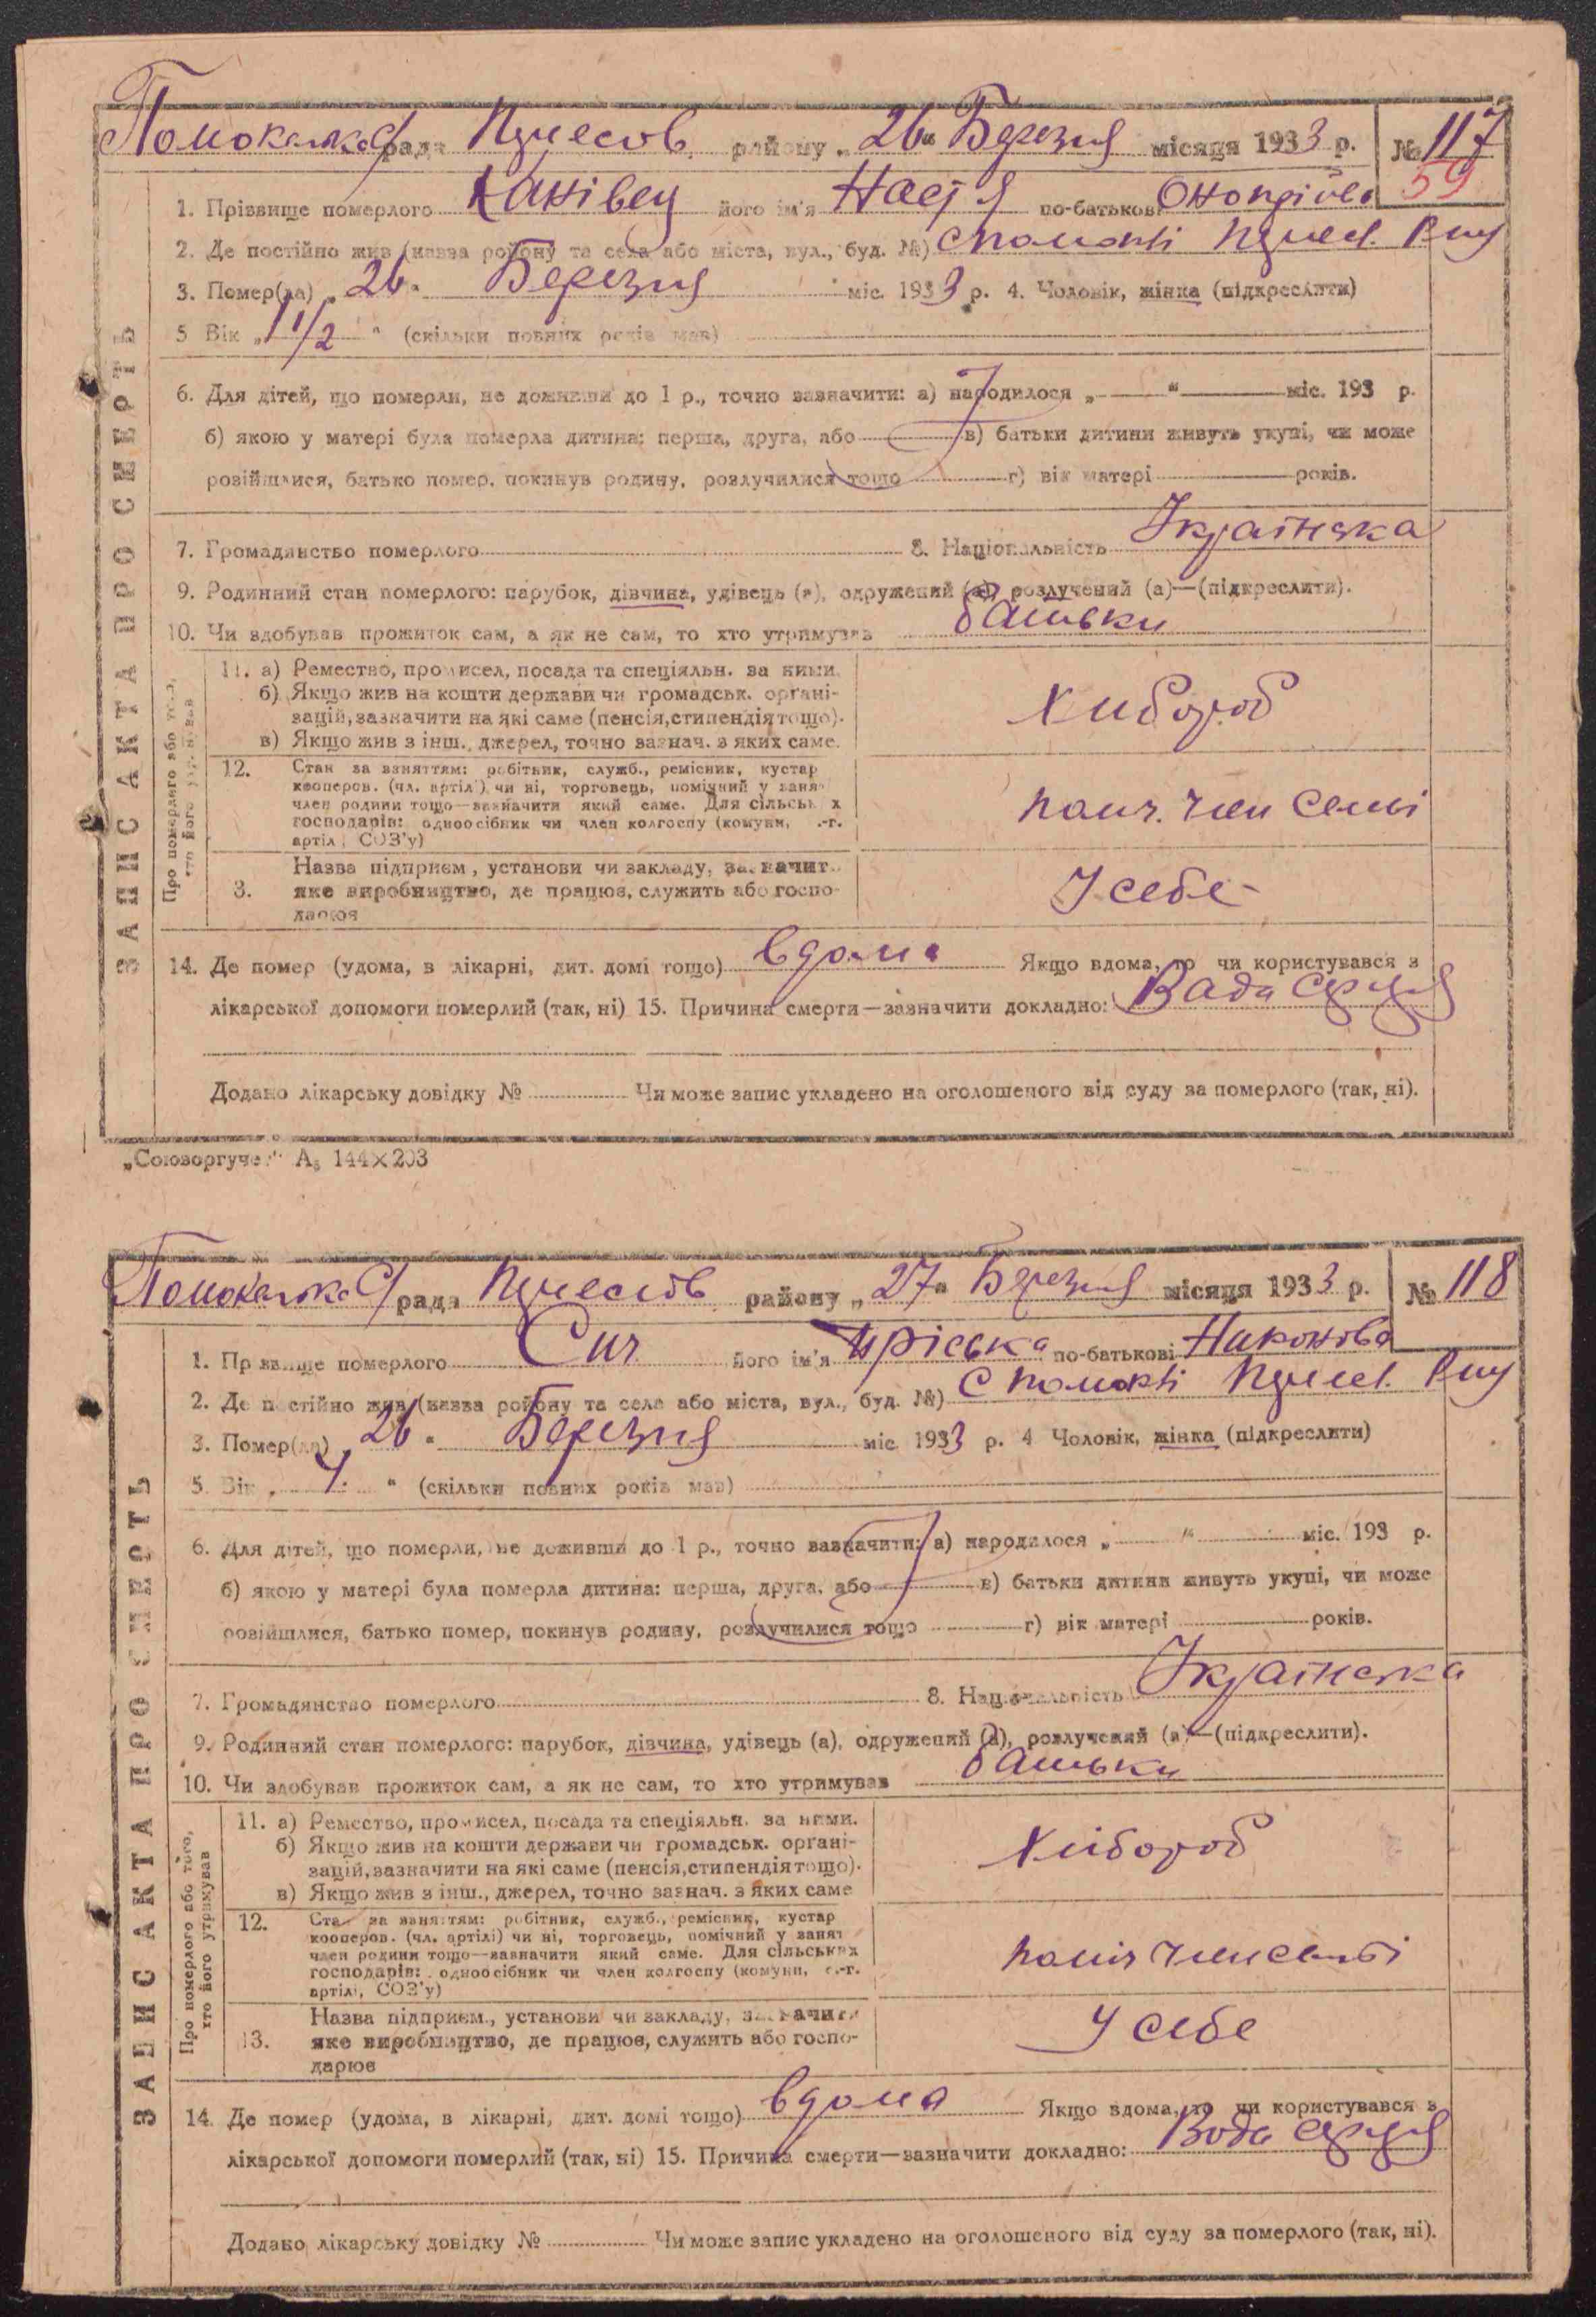 Помокельска С/рада Переясов району „26“ Березня місяця 1933 р. № 117
59
1. Прізвище померлого Канівец його ім'я Настя по-батькові Онопріова
2. Де постійно жив (назва ройону та села або міста, вул., буд. №) с Помоклі Переясл. Р-ну
3. Помер(ла) „26“ Березня міс. 1933 р. 4. Чоловік, жінка (підкреслити)
5 Вік „1 1/2“ (скільки повних років мав)
6. Для дітей, що померли, не доживши до 1 р., точно зазначити: а) народилося „ “ міс. 193 р.
б) якою у матері була померла дитина: перша, друга, або в) батьки дитини живуть укупі, чи може
розійшлися, батько помер, покинув родину, розлучилися тощо г) вік матері років.
7. Громадянство померлого 8. Національність Українска
9. Родинний стан померлого: парубок, дівчина, удівець (а), одружений (а), розлучений (а)—(підкреслити).
10. Чи здобував прожиток сам, а як не сам, то хто утримував батьки
ЗАПИС АКТА ПРО СМЕРТЬ
Про померлого або того, хто його утримував
11. а) Ремество, промисел, посада та спеціяльн. за ними.
б) Якщо жив на кошти держави чи громадськ. організацій, зазначити на які саме (пенсія, стипендія тощо).
в) Якщо жив з інш., джерел, точно зазнач. з яких саме.
Хлібороб
12. Стан за заняттям: робітник, служб., ремісник, кустар
кооперов. (чл. артілі) чи ні, торговець, помічний у занят
член родини тощо—зазначити який саме. Для сільських
господарів: одноосібник чи член колгоспу (комуни, с.-г.
артілі, СОЗ'у)
поміч. член семі
3. Назва підприєм., установи чи закладу, зазначити
яке виробництво, де працює, служить або господарює
У себе
14. Де помер (удома, в лікарні, дит. домі тощо) вдома Якщо вдома, то чи користувався з
лікарської допомоги померлий (так, ні) 15. Причина смерти—зазначити докладно: Вада серця
Додано лікарську довідку № Чи може запис укладено на оголошеного від суду за померлого (так, ні).
„Союзоргучет“ А5 144×203
Помокельска С/рада Переяслів району „27“ Березня місяця 1933 р. № 118
1. Прізвище померлого Сич його ім'я Пріська по-батькові Никонова
2. Де постійно жив (назва ройону та села або міста, вул., буд. №) с Помоклі Переясл. Р-ну
3. Помер(ла) „26“ Березня міс 1933 р. 4 Чоловік, жінка (підкреслити)
5. Вік „4.“ (скільки повних років мав)
6. Для дітей, що померли, не доживши до 1 р., точно зазначити: а) народилося „ “ міс. 193 р.
б) якою у матері була померла дитина: перша, друга, або в) батьки дитини живуть укупі, чи може
розійшлися, батько помер, покинув родину, розлучилися тощо г) вік матері років.
7. Громадянство померлого 8. Національність Українска
9. Родинний стан померлого: парубок, дівчина, удівець (а), одружений (а), розлучений (а)—(підкреслити).
10. Чи здобував прожиток сам, а як не сам, то хто утримував батьки
ЗАПИС АКТА ПРО СМЕРТЬ
Про померлого або того, хто його утримував
11. а) Ремество, промисел, посада та спеціяльн. за ними.
б) Якщо жив на кошти держави чи громадськ. організацій, зазначити на які саме (пенсія, стипендія тощо).
в) Якщо жив з інш., джерел, точно зазнач. з яких саме
Хлібороб
12. Стан за заняттям: робітник, служб., ремісник, кустар
кооперов. (чл. артілі) чи ні, торговець, помічний у занят
член родини тощо—зазначити який саме. Для сільських
господарів: одноосібник чи член колгоспу (комуни, с.-г.
артілі, СОЗ'у)
поміч член семьі
13. Назва підприєм., установи чи закладу, зазначити
яке виробництво, де працює, служить або господарює
У себе
14. Де помер (удома, в лікарні, дит. домі тощо) вдома Якщо вдома, то чи користувався з
лікарської допомоги померлий (так, ні) 15. Причина смерти—зазначити докладно: Вода серця
Додано лікарську довідку № Чи може запис укладено на оголошеного від суду за померлого (так, ні).